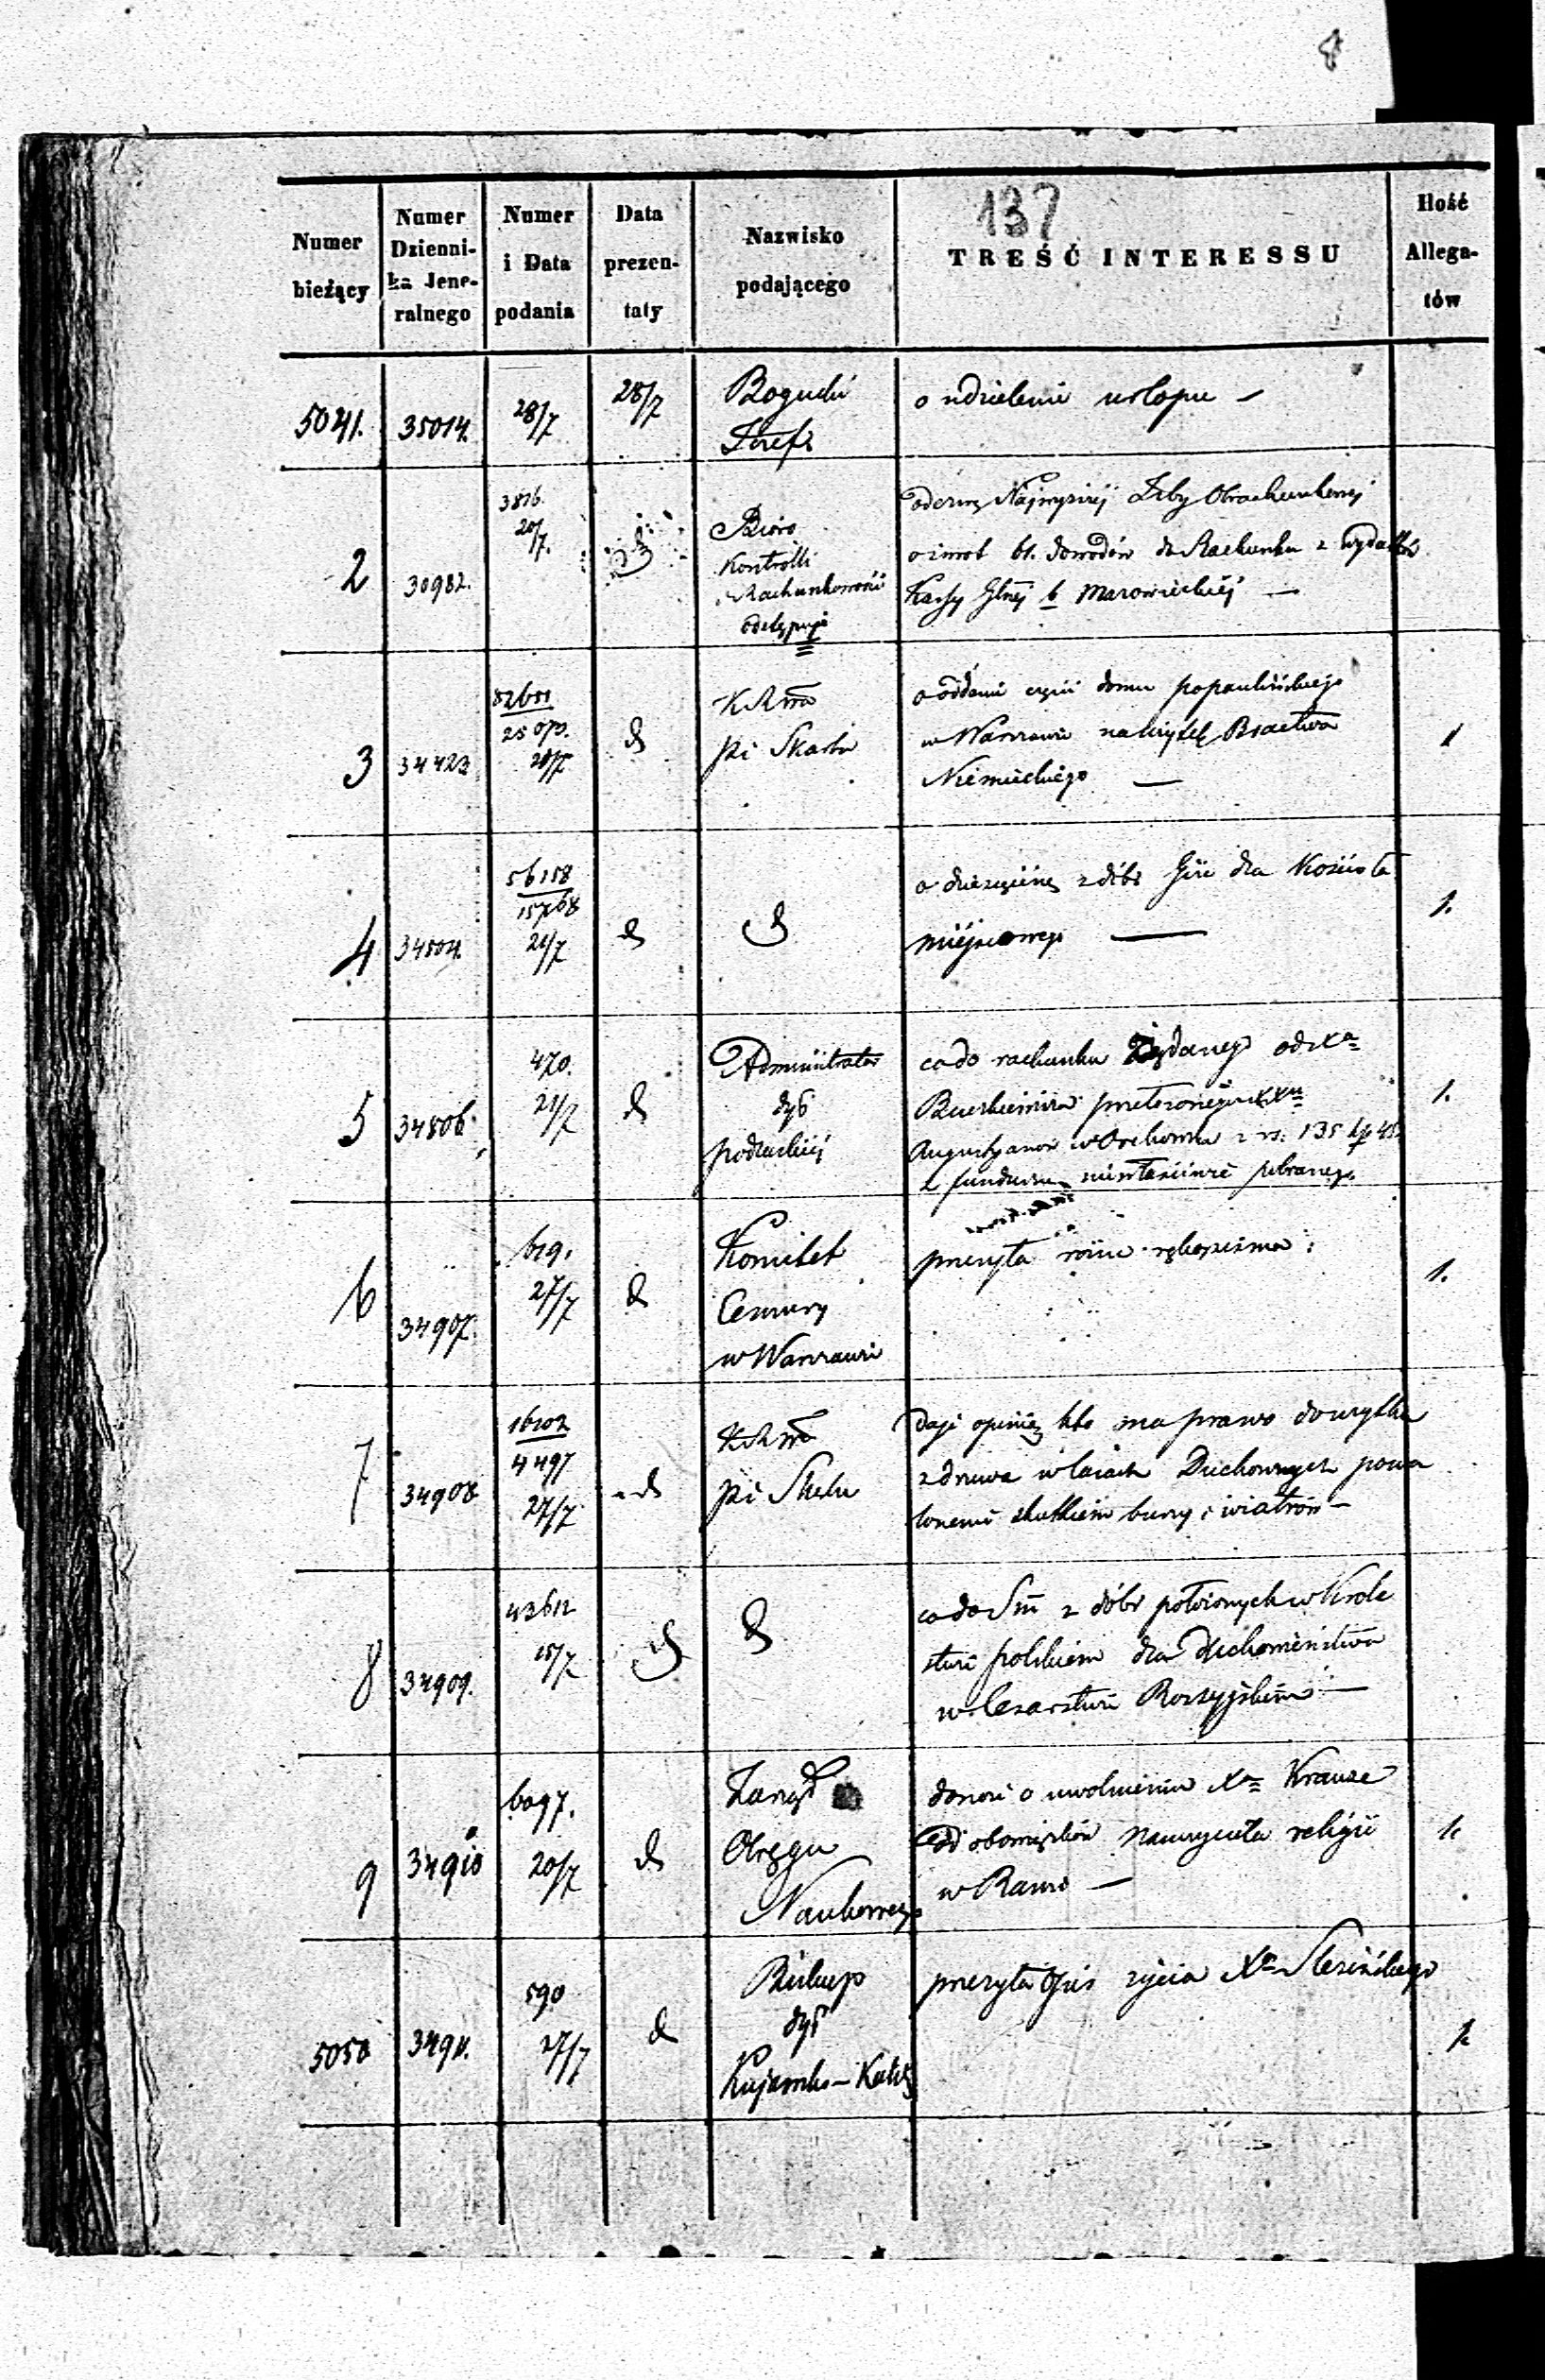 137
Numer bieżący
Numer Dzienni- ka Jene- ralnego
Numer i Data podania
Data prezen- taty
Nazwisko podającego
TREŚĆ INTERESSU
Ilość Allega- tów
5041. 35014. 28/7 28/7
Bogucki
Józefa
o udzielenie urlopu —
2 30982. 3816. 20/7.
Bióro
Kontrolli
Rachunkowości
odstępuje
odezwę Najwyższej Izby Obrachunkowej
o zwrot 61. dowodów do Rachunku z wydatków
Kassy Głnej b Mazowieckiej —
3 34423 25070. 20/7
KRwa
Pi Skarbu
o oddanie części domu popaulińskiego
w Warszawie na użytek Bractwa
Niemieckiego —
1
4 34504. 56158 15768 21/7
o dziesięcinę z dóbr Góra dla Kościoła
miejscowego —
1.
5 34806. 470. 21/7
Administrator
dyó
podlaskiej
co do rachunku żądanego od Xa
przełożonego XXu
Augustyanów w Orchówku z rs. 135 kp 45
z funduszu niewłaściwie pobranego.
1.
6 34907. 619. 27/7
Komitet
Cenzury
w Warszawie
przesyła różne rękopisma:
1.
7 34908 16202 4497 27/7
KRwa
Pi Skbu
daje opinię kto ma prawo do użytku
z drzewa w lasach Duchownych powa
lonemi skutkiem burzy i wiatrów —
8 34909. 43612 15/7
co do Sm z dóbr położonych w Króle
stwie polskiem dla Duchowieństwa
w Cesarstwie Rossyjskiem —
9 34910 6097. 20/7
Zarząd
Okręgu
Naukowego
donosi o uwolnieniu Xa Krauze
od obowiązków Nauczyciela religii
w Rawie —
1.
5050 34911. 590 27/7
Biskup
dyó
Kujawsko-Kalis
przesyła opis życia Xa Slesińskiego
1.